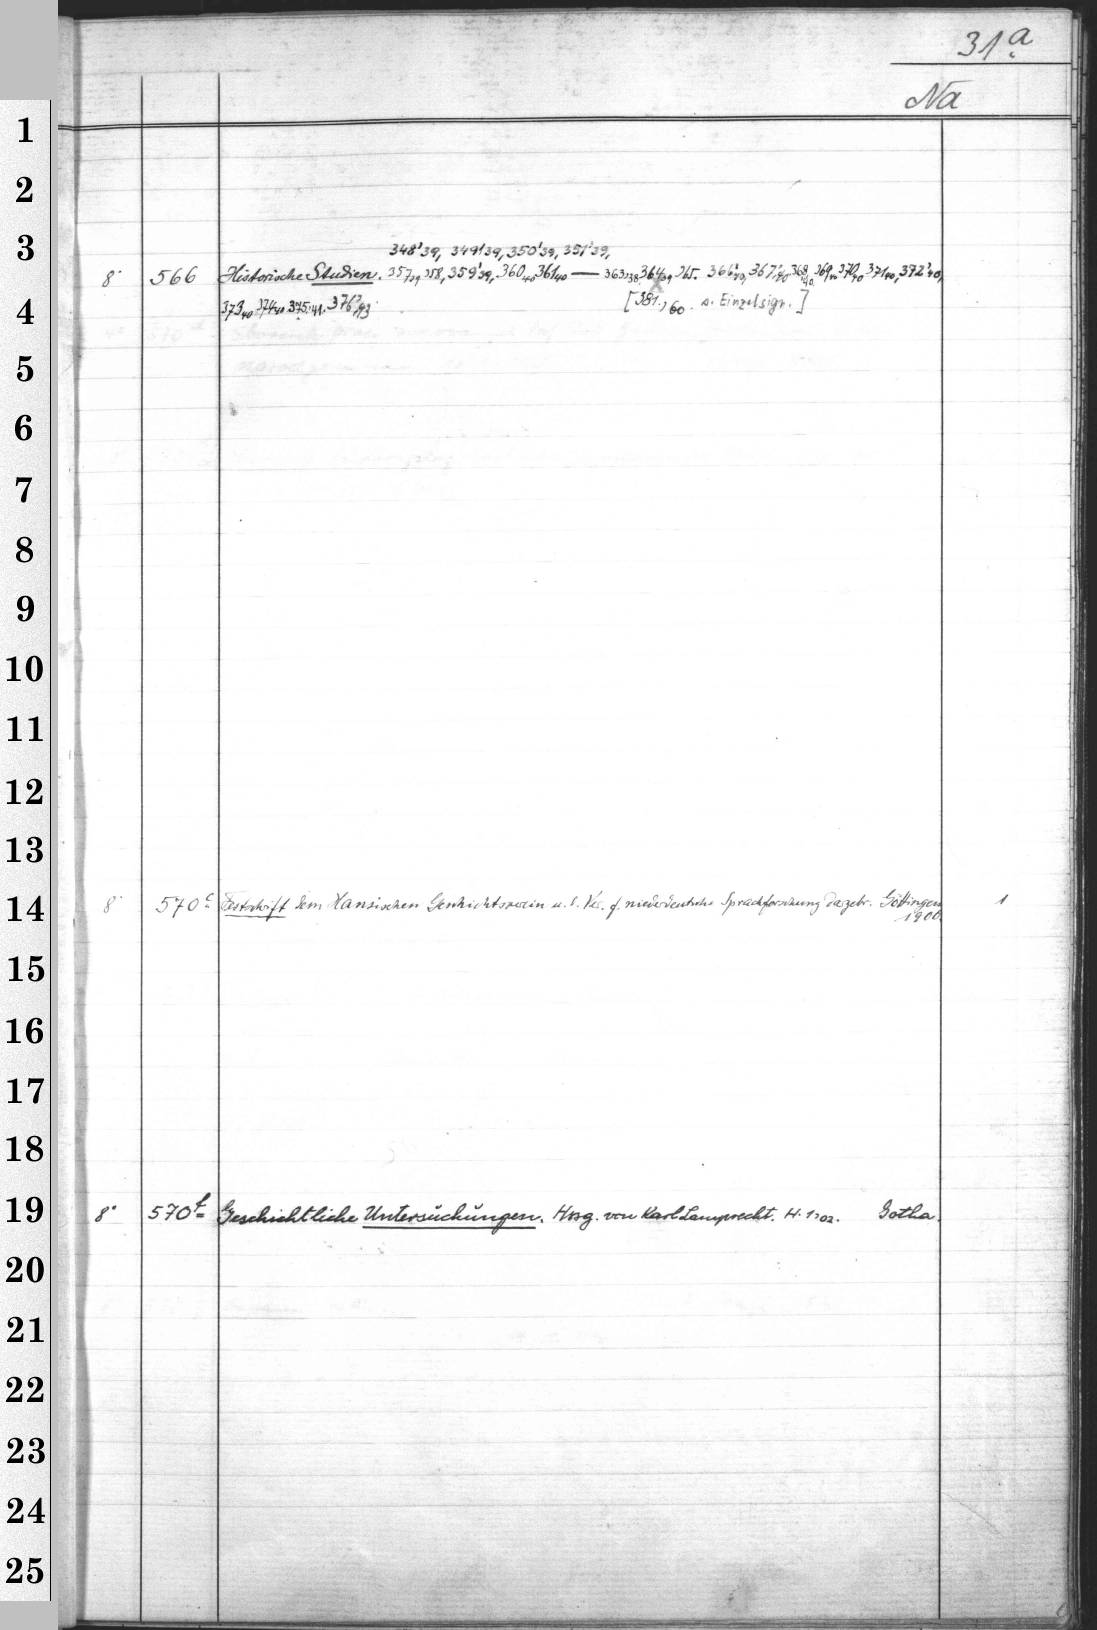 31a
Na
1
2
3
348'39, 349'39, 350'39, 351'39,
8° 566 Historische Studien. 357,39 358, 359'39, 360 40 361 40 — 363,38, 364,39, 365. 366'40, 367'40 368,40 369,40 370,40 371 40, 372'40,
4
373 40 374 40 375,41. 376',43 [381.,60. s. Einzelsign.]
5
6
7
8
9
10
11
12
13
14
8° 570c Festschrift dem Hansischen Geschichtsverein u. d. Ver. f. niederdeutsche Sprachforschung dargebr. Göttingen 1
1900.
15
16
17
18
19
8° 570f Geschichtliche Untersuchungen. Hrsg. von Karl Lamprecht. H. Gotha.
20
21
22
23
24
25